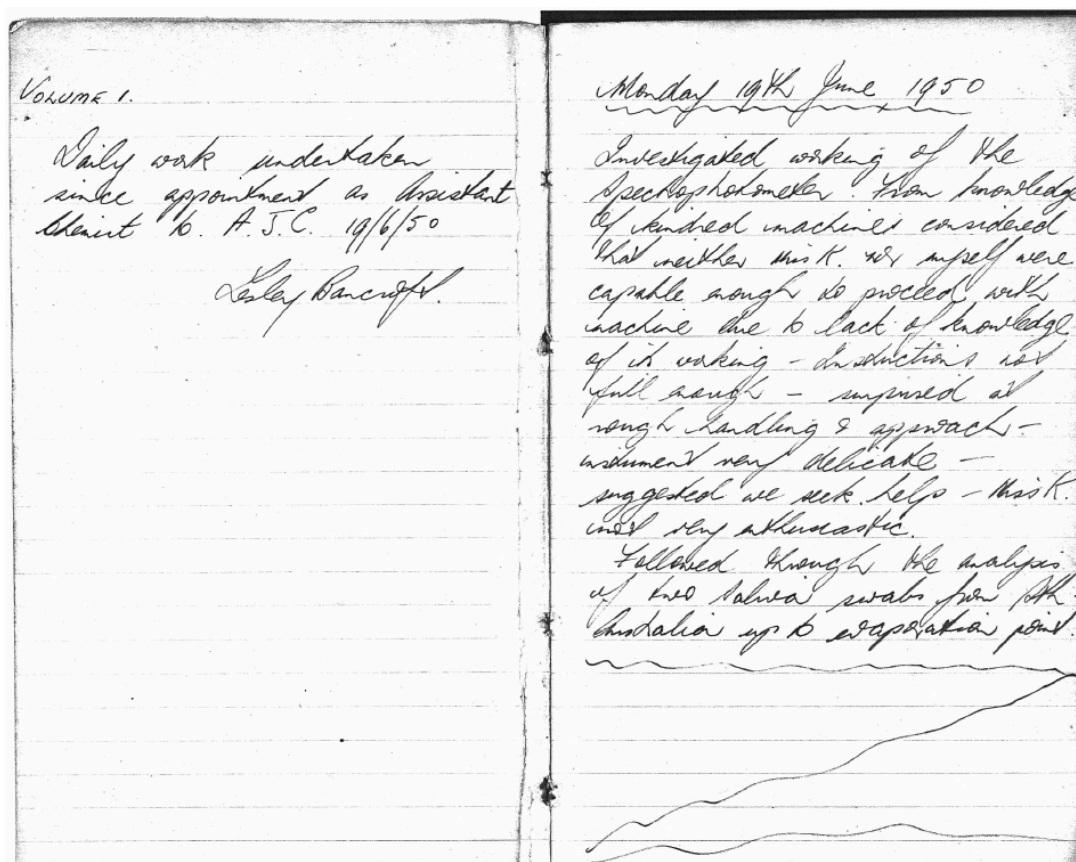 VOLUME 1.
Daily work undertaken
since appointment as Assistant
Chemist to A.J.C. 19/6/50
Lesley Bancroft.
Monday 19th June 1950
Investigated working of the
Spectrophotometer. From knowledge
of kindred machines considered
that neither Miss K. nor myself were
capable enough to proceed with
machine due to lack of knowledge
of its working – Instructions not
full enough – surprised at
rough handling & approach –
instrument very delicate –
suggested we seek help – Miss K.
not very enthusiastic.
Followed through the analysis
of two Saliva swabs from Sth
Australia up to evaporation point.